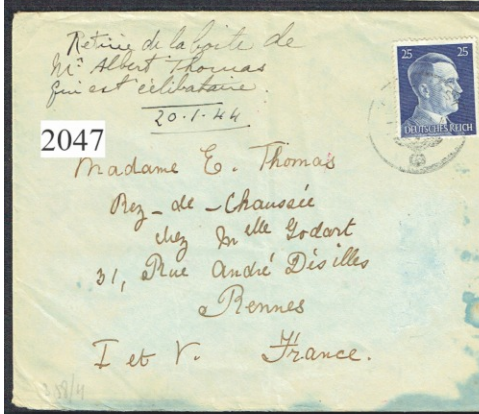 Retirée de la boîte de
Mr Albert Thomas
qui est célibataire.
20.1.44
25 25
DEUTSCHES REICH
2047
Madame E. Thomas
Rez-de-Chaussée
chez Melle Godart
31, Rue André Désilles
Rennes
I et V. France.